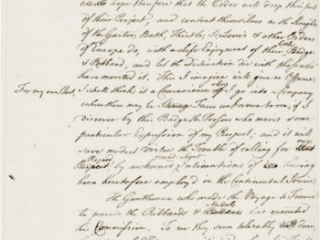 hope therefore that the Order will drop this part
of their Project, and content themselves as the Knights
of the Garter, Bath, Thistle, St. Louis & other Orders
of Europe do, with a Life Enjoyment of their little Badge
& Ribband, and let the Distinction die with those who
have merited it. This I imagine will give no Offence.
For my own Part, I shall think it a Convenience when I go into a Company
where there may be Faces unknown to me, if I
discover by this Badge the Persons who merit some
particular Expression of my Respect; and it will
save modest Virtue the Trouble of calling for
Regard, by awkward Intimations of having
been heretofore employ'd in the Continental Service.
The Gentleman who made the Voyage to France
to provide the Ribbands & Medals has executed
his Commission. To me they seem tolerably done